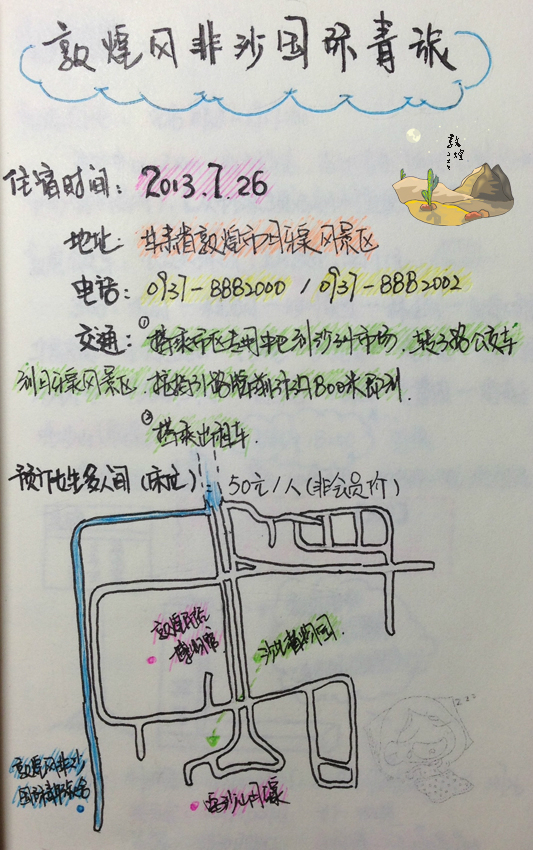 敦煌风非沙国际青旅
敦煌
住宿时间: 2013.7.26
地址: 甘肃省敦煌市月牙泉风景区
电话: 0937-8882000 / 0937-8882002
交通: ①搭乘市区专用中巴到沙州市场,转3路公交车
到月牙泉风景区,按指引路牌前行约800米即到.
②搭乘出租车.
预订北生多人间(床位): 50元/人(非会员价)
敦煌民俗
博物馆
沙生植物园
敦煌风非沙
国际青年旅舍
鸣沙山月牙泉